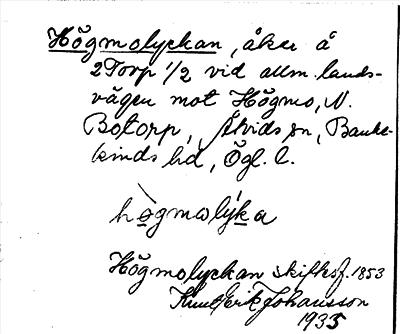 Högmolyckan, åker å
2 Torp 1/2 vid allm. lands-
vägen mot Högmo, N.
Botorp, Åtvids sn, Banke-
kinds hd, Ögl. l.
hògmolýka
Högmolyckan skifksf. 1853
Knut Erik Johansson
1935